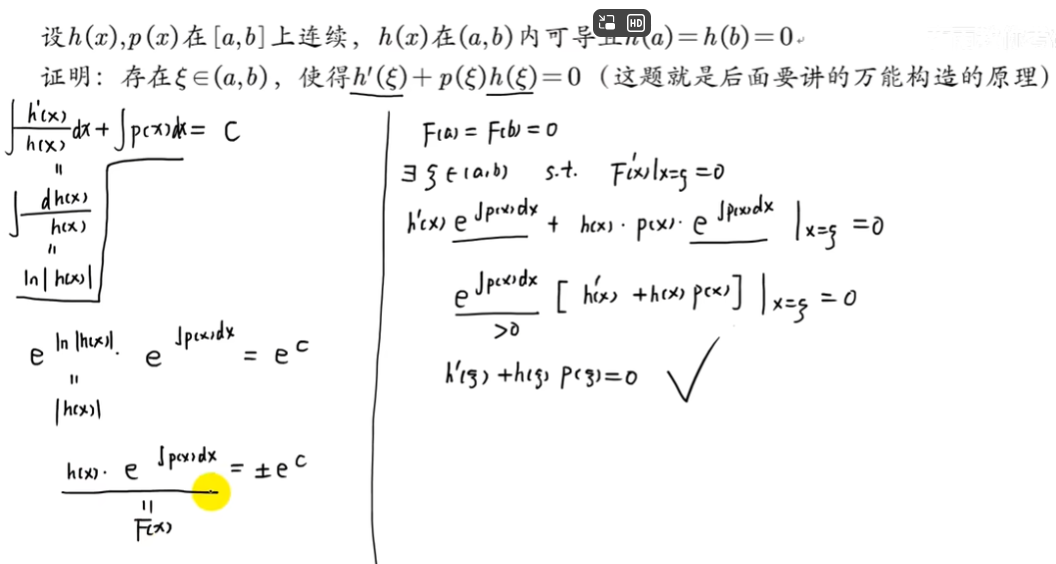 设h(x),p(x)在[a,b]上连续，h(x)在(a,b)内可导且h(a)=h(b)=0
HD
证明：存在ξ∈(a,b)，使得h'(ξ)+p(ξ)h(ξ)=0（这题就是后面要讲的万能构造的原理)
∫ h'(x)/h(x) dx + ∫p(x)dx = C
=
∫ dh(x)/h(x)
=
ln|h(x)|
e^{ln|h(x)|} · e^{∫p(x)dx} = e^C
=
|h(x)|
h(x) · e^{∫p(x)dx} = ±e^C
=
F(x)
F(a) = F(b) = 0
∃ ξ∈(a,b) s.t. F'(x)|x=ξ = 0
h'(x) e^{∫p(x)dx} + h(x) · p(x) · e^{∫p(x)dx} |x=ξ = 0
e^{∫p(x)dx} [ h'(x) + h(x) p(x) ] |x=ξ = 0
>0
h'(ξ) + h(ξ) p(ξ) = 0 √